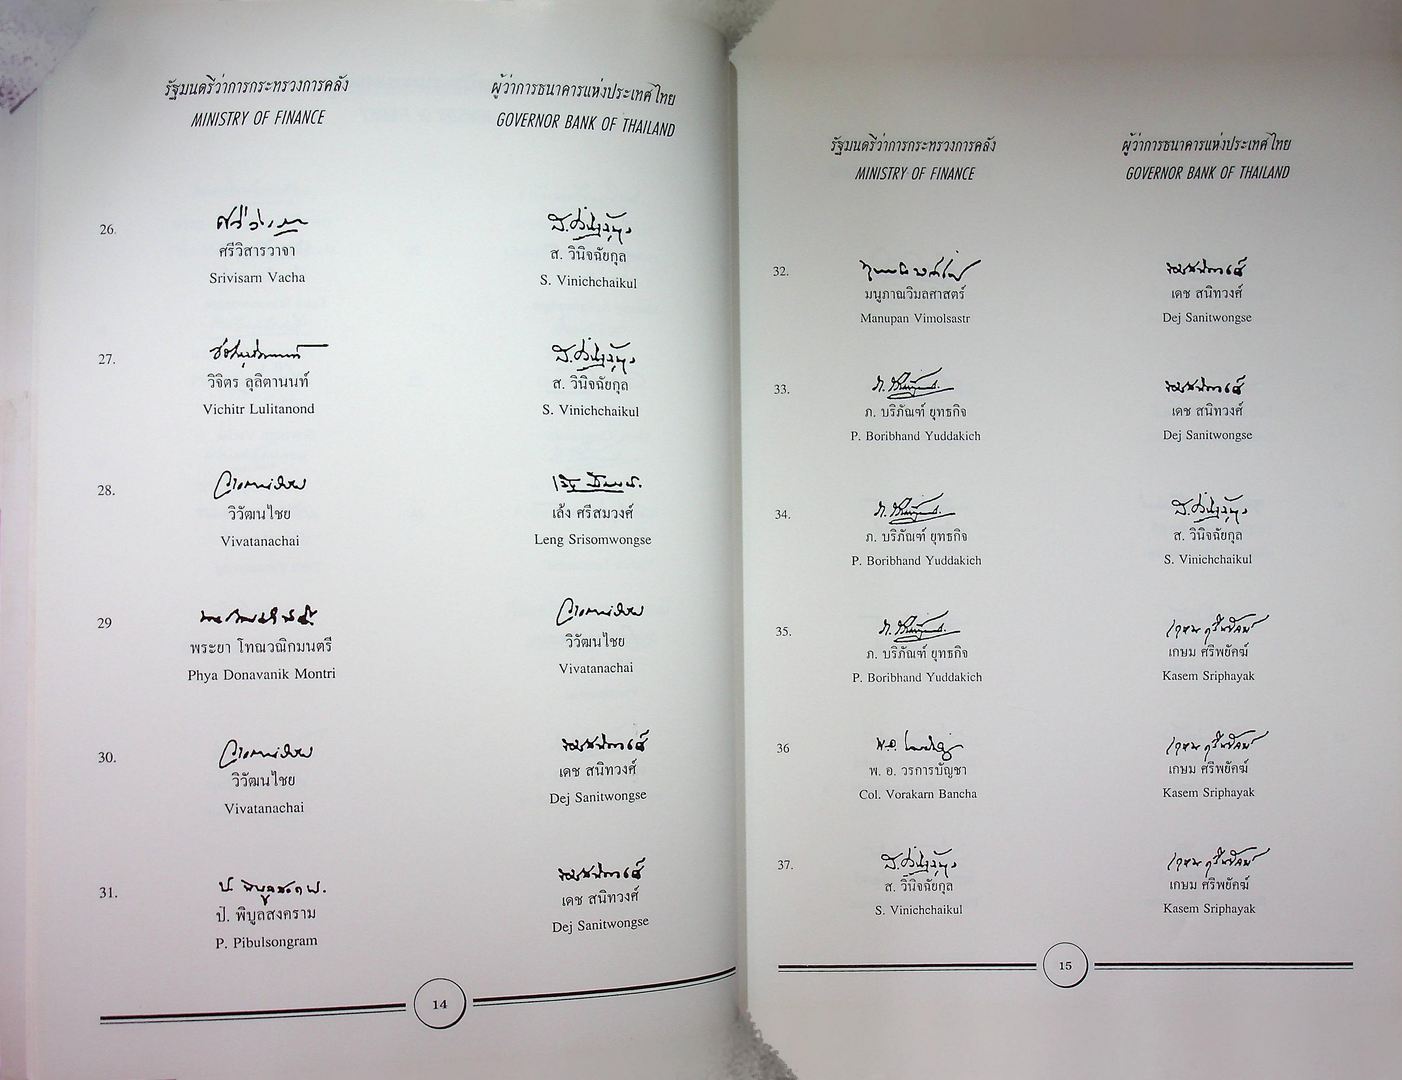 รัฐมนตรีว่าการกระทรวงการคลัง
MINISTRY OF FINANCE
ผู้ว่าการธนาคารแห่งประเทศไทย
GOVERNOR BANK OF THAILAND
26.
ศรีวิสารวาจา
Srivisarn Vacha
ส. วินิจฉัยกุล
S. Vinichchaikul
27.
วิจิตร ลุลิตานนท์
Vichitr Lulitanond
ส. วินิจฉัยกุล
S. Vinichchaikul
28.
วิวัฒนไชย
Vivatanachai
เล้ง ศรีสมวงศ์
Leng Srisomwongse
29
พระยา โทณวณิกมนตรี
Phya Donavanik Montri
วิวัฒนไชย
Vivatanachai
30.
วิวัฒนไชย
Vivatanachai
เดช สนิทวงศ์
Dej Sanitwongse
31.
ป. พิบูลสงคราม
ป. พิบูลสงคราม
P. Pibulsongram
เดช สนิทวงศ์
Dej Sanitwongse
14
รัฐมนตรีว่าการกระทรวงการคลัง
MINISTRY OF FINANCE
ผู้ว่าการธนาคารแห่งประเทศไทย
GOVERNOR BANK OF THAILAND
32.
มนูภาณวิมลศาสตร์
Manupan Vimolsastr
เดช สนิทวงศ์
Dej Sanitwongse
33.
ภ. บริภัณฑ์ ยุทธกิจ
P. Boribhand Yuddakich
เดช สนิทวงศ์
Dej Sanitwongse
34.
ภ. บริภัณฑ์ ยุทธกิจ
P. Boribhand Yuddakich
ส. วินิจฉัยกุล
S. Vinichchaikul
35.
ภ. บริภัณฑ์ ยุทธกิจ
P. Boribhand Yuddakich
เกษม ศรีพยัคฆ์
Kasem Sriphayak
36
พ. อ. วรการบัญชา
Col. Vorakarn Bancha
เกษม ศรีพยัคฆ์
Kasem Sriphayak
37.
ส. วินิจฉัยกุล
S. Vinichchaikul
เกษม ศรีพยัคฆ์
Kasem Sriphayak
15